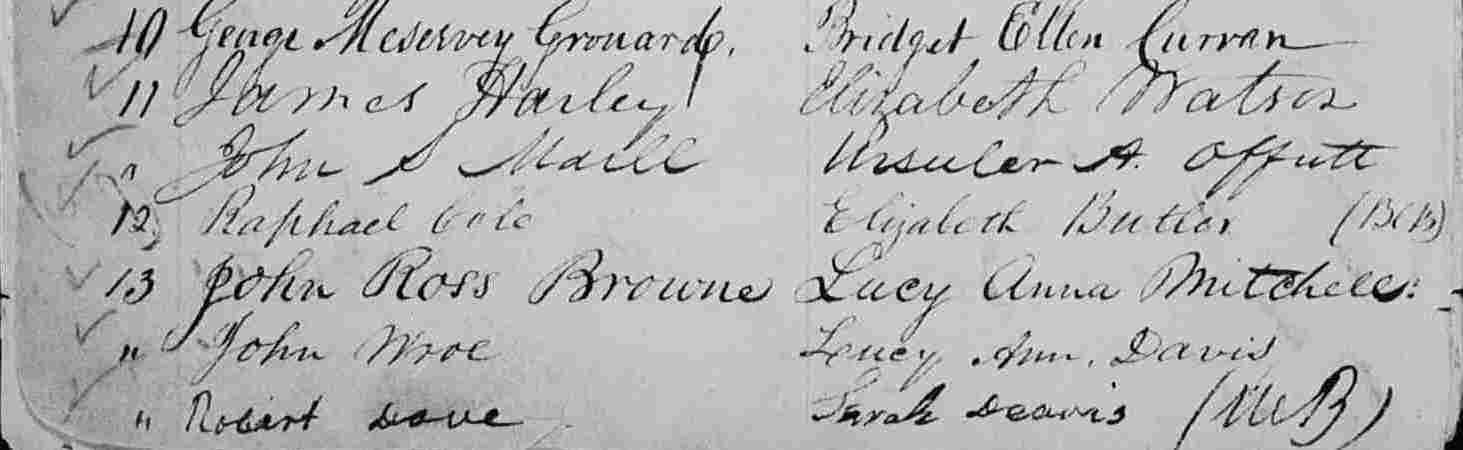 10 George Meservey Grouard. Bridget Ellen Curran
11 James Harley Elizabeth Watson
" John S Maill Ursuler A. Offutt
12 Raphael Cole Elizabeth Butler
13 John Ross Browne Lucy Anna Mitchell:
" John Wroe Lucy Ann. Davis
" Robert Dove Sarah Deavis